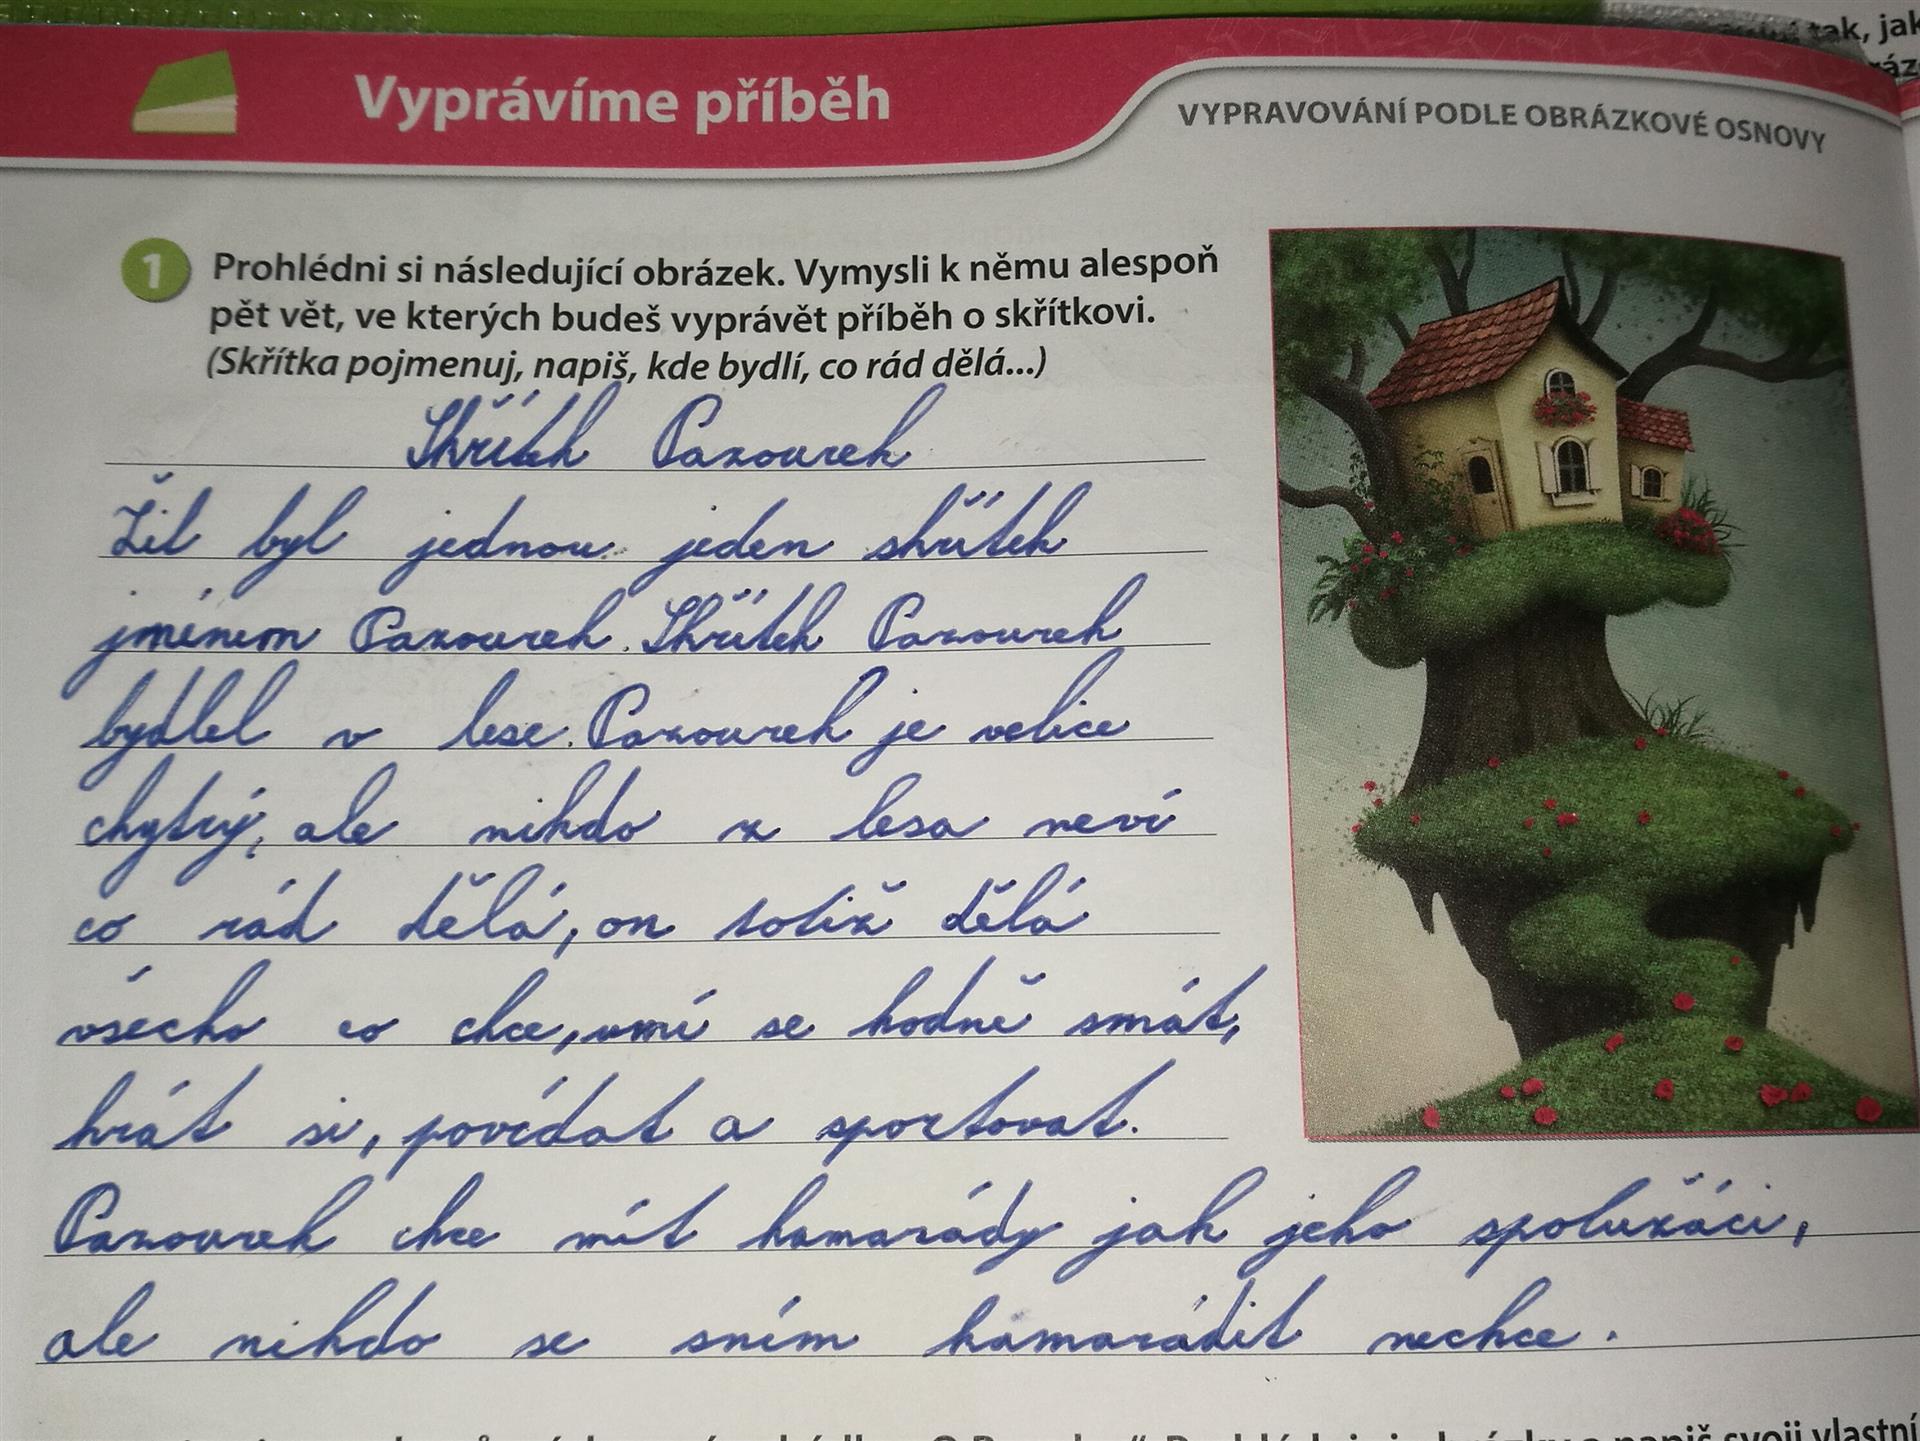 tak, jak
Vyprávíme příběh
VYPRAVOVÁNÍ PODLE OBRÁZKOVÉ OSNOVY
1 Prohlédni si následující obrázek. Vymysli k němu alespoň
pět vět, ve kterých budeš vyprávět příběh o skřítkovi.
(Skřítka pojmenuj, napiš, kde bydlí, co rád dělá...)
Skřítek Pazourek
Žil byl jednou jeden skřítek
jménem Pazourek. Skřítek Pazourek
bydlel v lese. Pazourek je velice
chytrý, ale nikdo z lesa neví
co rád dělá, on totiž dělá
všecho co chce, umí se hodně smát,
hrát si, povídat a sportovat.
Pazourek chce mít kamarády jak jeho spolužáci,
ale nikdo se sním kamarádit nechce.